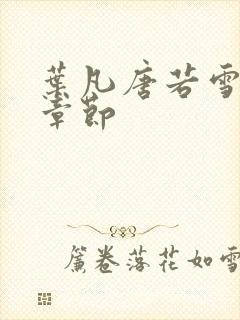 葉凡唐若雪
章節
簾卷落花如雪